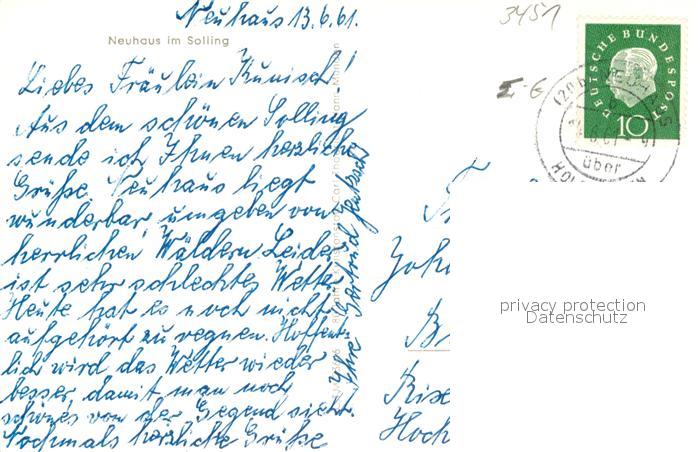 Neuhaus 13.6.61.
Neuhaus im Solling
Liebes Fräulein Kunisch!
Aus dem schönen Solling
sende ich Ihnen herzliche
Grüße. Neuhaus liegt
wunderbar, umgeben von
herrlichen Wäldern. Leider
ist sehr schlechtes Wetter
Heute hat es noch nicht
aufgehört zu regnen. Hoffent-
lich wird das Wetter wieder
besser, damit man noch
schönes von der Gegend sieht.
Nochmals herzliche Grüße
Ihre Gertrud
3451
DEUTSCHE BUNDESPOST
10
über
Br
Rise
Hoch
privacy protection
Datenschutz